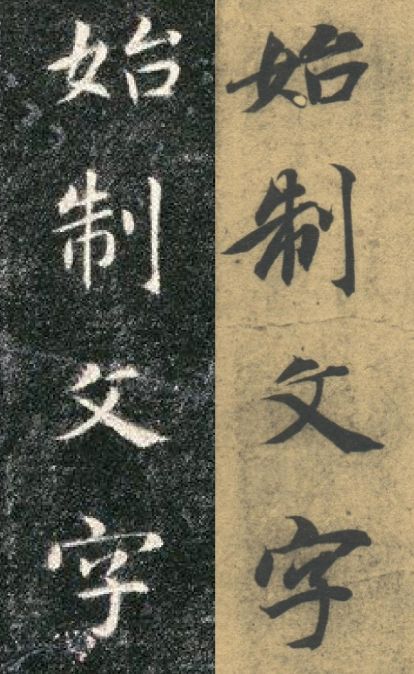 始制文字
始制文字